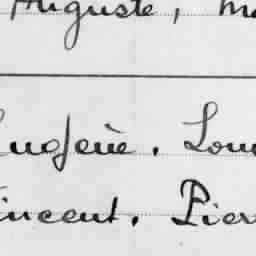 Auguste, Ma
Eugène. Lou
Vincent. Pier